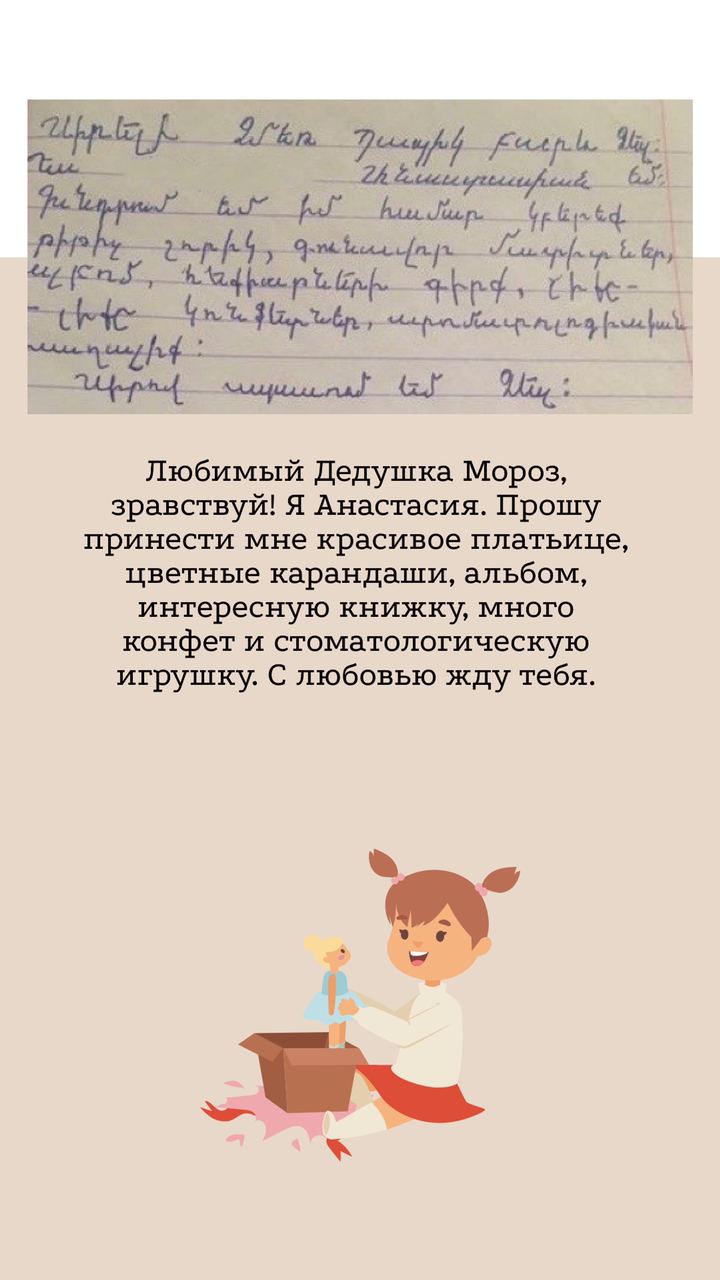 Սիրելի Ձմեռ Պապիկ բարև Ձեզ:
Ես եմ:
Խնդրում եմ իմ համար կբերեք
շորիկ, գունավոր մատիտներ,
ալբոմ, հեքիաթների գիրք, լիքը-
-լիքը կոնֆետներ,
խաղալիք:
Սիրով սպասում եմ Ձեզ:
Любимый Дедушка Мороз,
зравствуй! Я Анастасия. Прошу
принести мне красивое платьице,
цветные карандаши, альбом,
интересную книжку, много
конфет и стоматологическую
игрушку. С любовью жду тебя.